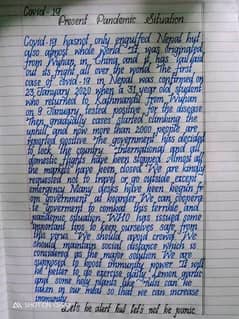 Covid-19
Present Pandemic Situation
Covid-19 hasnot only engulfed Nepal but
also almost whole world. It was originated
from Wuhan, in China and it has laid
out its fright all over the world. The first
case of covid-19 in Nepal was confirmed on
23 January 2020 when a 31 year old student
who returned to Kathmandu from Wuhan
on 9 January tested positive for the disease
Then gradually cases started climbing the
uphill and now more than 2000 people are
reported positive. The government has decided
to lock the country. International and
domestic flights have been stopped. Almost all
the markets have been closed. We are kindly
requested not to travel or go outside except
emergency. Many desks have been begun
government at boarder. We can cooperate
government to combat this terrible and
pandemic situation. WHO has issued some
important tips to keep ourselves safe from
this virus. We should avoid crowd. We
should maintain social distance which is
considered as the major solution. We are
supposed to boost immunity power. It will
be better to do exercise, garlic, lemon,
and some holy plants like tulsi can be
taken in our meal so that we can increase
immunity.
Let's be alert but let's not be panic.
SHOT ON